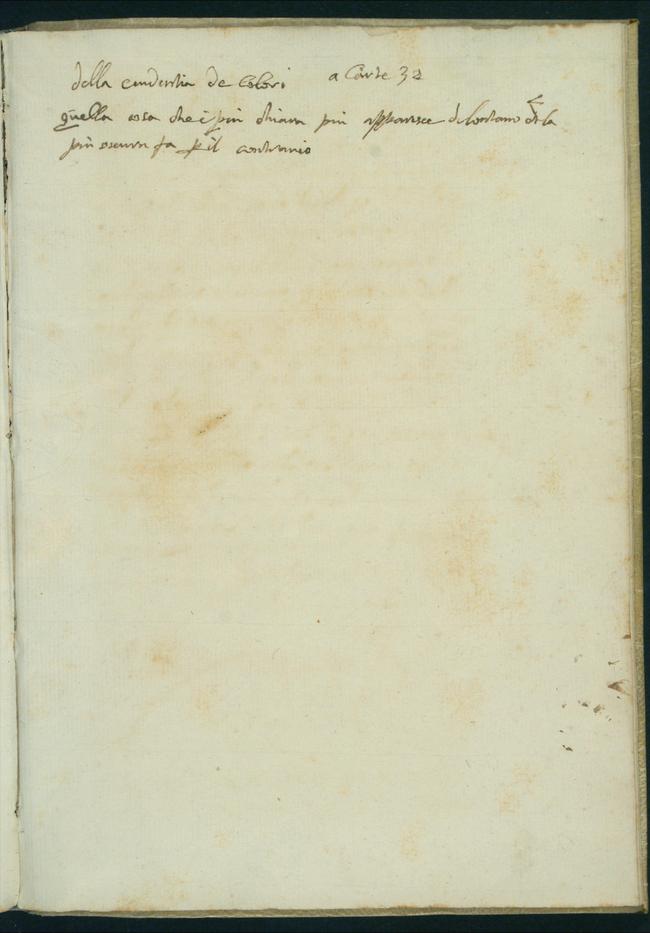 della euidentia de Colori a Carte 32
quella cosa che è piu chiara piu apparisce di lontano et la
piu oscura fa p il contrario